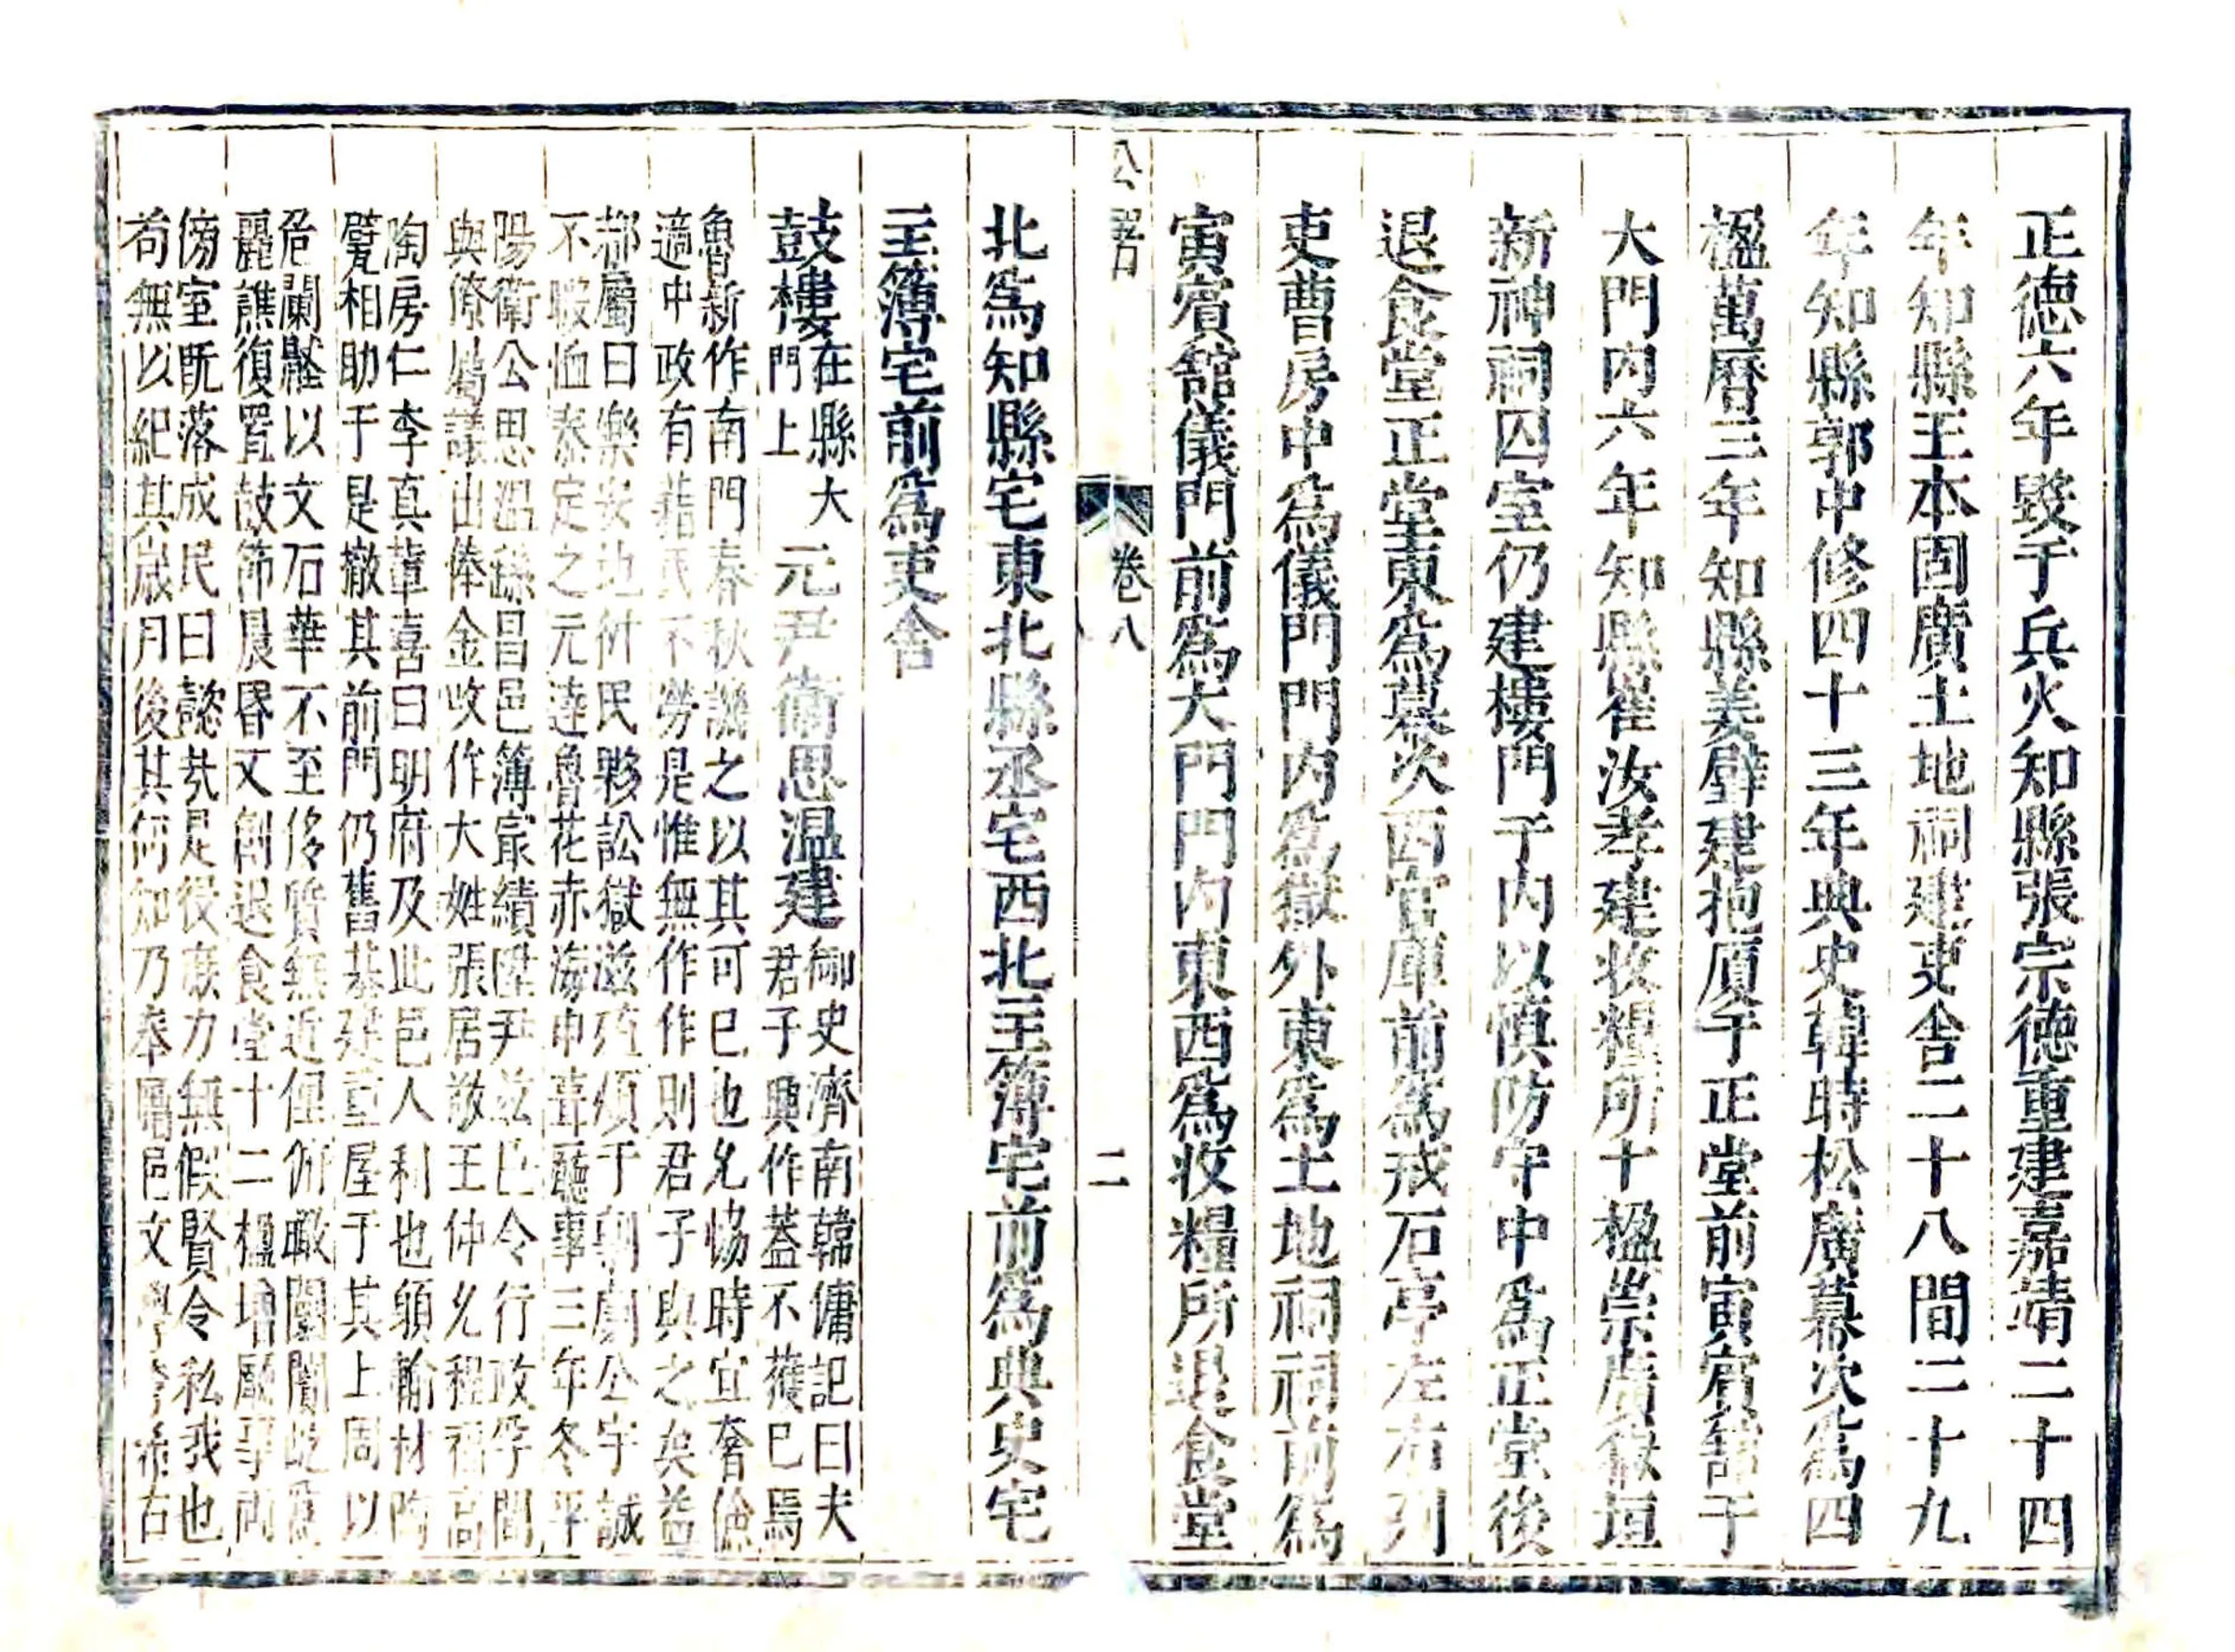 正德六年毁于兵火知縣張宗德重建嘉靖二十四
年知縣王本固廣土地祠建吏舍二十八間二十九
年知縣郭中修四十三年典史韓時松廣幕次爲四
楹萬曆三年知縣姜壁建抱厦于正堂前寅賓舘于
大門内六年知縣崔汝孝建收糧所十楹崇廣獄垣
新神祠囚室仍建樓門于内以慎防守中爲正堂後
退食堂正堂東爲幕次西官庫前爲戒石亭左右列
吏曹房中爲儀門門内爲獄外東爲土地祠祠前爲
寅賓舘儀門前爲大門門内東西爲收糧所退食堂
公署
卷八
二
北爲知縣宅東北縣丞宅西北主簿宅前爲典史宅
主簿宅前爲吏舍
鼓樓在縣大
門上
元尹衛思温建御史濟南韓傭記曰夫
君子興作葢不獲巳焉
魯新作南門春秋譏之以其可巳也允恊時宜奢儉
適中政有藉民不勞是惟無作作則君子與之矣益
都屬曰樂安地附民夥訟獄滋殷煩于朝劇公宇誠
不暇恤泰定之元逹魯花赤海中葺聽事三年冬平
陽衛公思温繇昌邑簿㝡績陞尹兹邑令行政孚間
與僚屬議出俸金收作大姓張居敬王仲允程福高
陶房仁李真輩喜曰明府及此邑人利也願輸材陶
甓相助于是撤其前門仍舊基建重屋于其上周以
危闌甃以文石華不至侈質無近俚俯瞰闤闠屹爲
麗譙復置鼓篩晨昏又創退食堂十二楹增廳事兩
傍室旣落成民曰懿哉是役蔟力無假賢令私我也
苟無以紀其歲月後其何知乃奉囑邑文學 㴑右